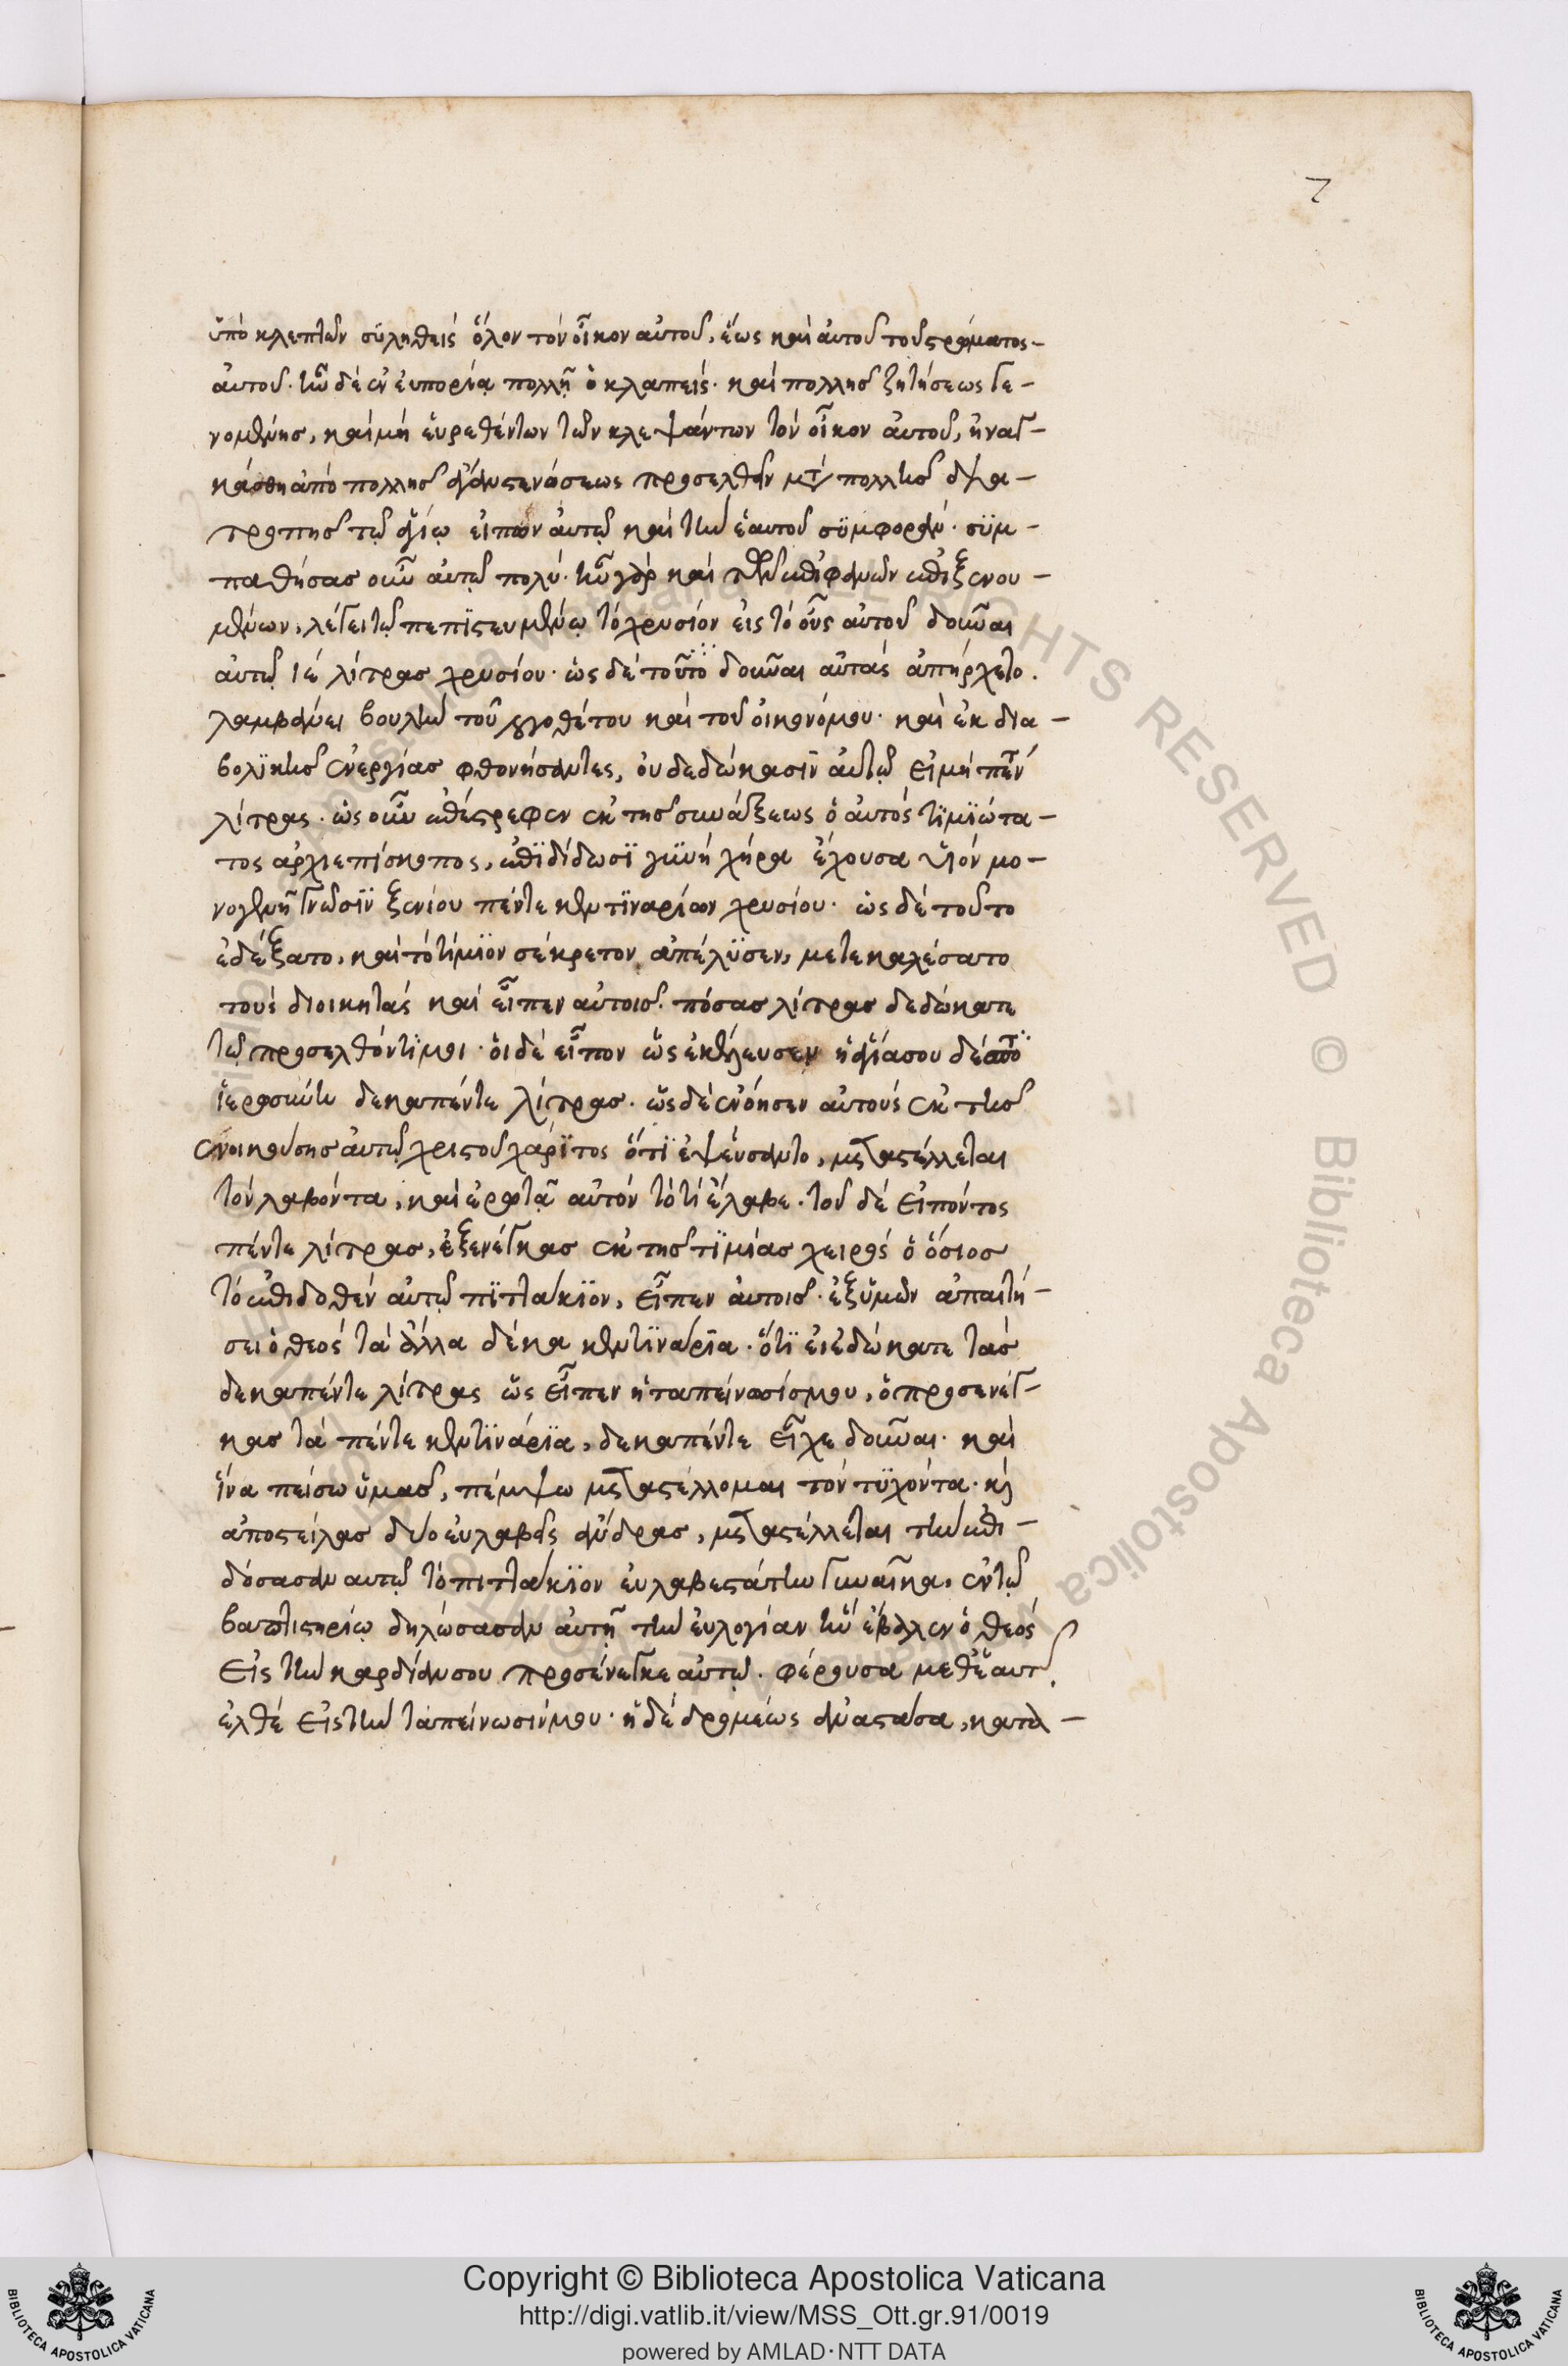 7
ὑπὸ κλεπτῶν συληθεὶς ὅλον τὸν οἶκον αὐτοῦ, ἕως καὶ αὐτοῦ τοῦ στρώματος
αὐτοῦ. ἦν δὲ ἐν εὐπορία πολλῆ ὁ κλαπείς. καὶ πολλῆς ζητήσεως γε-
νομένης, καὶ μὴ εὑρεθέντων τῶν κλεψάντων τὸν οἶκον αὐτοῦ, ἠναγ-
κάσθη ἀπὸ πολλῆς στενάσεως προσελθεῖν μετὰ πολλῆς ἐν-
τροπῆς τῷ ἁγίῳ εἰπὼν αὐτῷ καὶ τὴν ἑαυτοῦ συμφοράν. συμ-
παθήσας οὖν αὐτῷ πολύ. ἦν γὰρ καὶ τῶν ἐπιφανῶν ἐπιξενου-
μένων, λέγει τῷ πεπιστευμένῳ τὸ χρυσίον εἰς τὸ οὖς αὐτοῦ δοῦναι
αὐτῷ ιέ λίτρας χρυσίου. ὡς δὲ τοῦτο δοῦναι αὐτὰς ἀπήρχετο.
λαμβάνει βουλὴν τοῦ λογοθέτου καὶ τοῦ οἰκονόμου. καὶ ἐκ δια-
βολικῆς ἐνεργίας φθονήσαντες, οὐ δεδώκασιν αὐτῷ εἰ μὴ πέντε
λίτρας. ὡς οὖν ἐπέστρεφεν ἐκ τῆς συνάξεως ὁ αὐτὸς τιμιώτα-
τος ἀρχιεπίσκοπος, ἐπιδίδωσι γυνὴ χήρα ἔχουσα υἱὸν μο-
νογενῆ γνῶσιν ξενίου πέντε κεντιναρίων χρυσίου. ὡς δὲ τοῦτο
ἐδέξατο, καὶ τὸ τίμιον σέκρετον ἀπέλυσεν, μετεκαλέσατο
τοὺς διοικητὰς καὶ εἶπεν αὐτοῖς. πόσας λίτρας δεδώκατε
τῷ προσελθόντι μοι. οἱ δὲ εἶπον ὡς ἐκέλευσεν ἡ ἁγία σου δέσποτα
ἱεροσύνη δεκαπέντε λίτρας. ὡς δὲ ἐνόησεν αὐτοὺς ἐκ τῆς
ἐνοικούσης αὐτῷ χριστοῦ χάριτος ὅτι ἐψεύσαντο, μεταστέλλεται
τὸν λαβόντα, καὶ ἐρωτᾶ αὐτὸν τὸ τί ἔλαβε. τοῦ δὲ εἰπόντος
πέντε λίτρας, ἐξενέγκας ἐκ τῆς τιμίας χειρὸς ὁ ὅσιος
τὸ ἐπιδοθὲν αὐτῷ πιττάκιον, εἶπεν αὐτοῖς. ἐξ ὑμῶν ἀπαιτή-
σει ὁ θεὸς τὰ ἄλλα δέκα κεντινάρια. ὅτι εἰ ἐδώκατε τὰς
δεκαπέντε λίτρας ὡς εἶπεν ἡ ταπείνωσίς μου, ὁ προσενέγ-
κας τὰ πέντε κεντινάρια, δεκαπέντε εἶχε δοῦναι. καὶ
ἵνα πείσω ὑμᾶς, πέμψω μεταστέλλομαι τὸν τυχόντα. καὶ
ἀποστείλας δύο εὐλαβεῖς ἄνδρας, μεταστέλλεται τὴν ἐπι-
δόσασαν αὐτῷ τὸ πιττάκιον εὐλαβεστάτην γυναῖκα, ἐν τῷ
βαπτιστηρίῳ δηλώσασαν αὐτῆ τὴν εὐλογίαν ἣν ἔβαλεν ὁ θεὸς
εἰς τὴν καρδίαν σου προσένεγκε αὐτῷ. φέρουσα μεθ' ἑαυτ
ἐλθὲ εἰς τὴν ταπείνωσίν μου. ἡ δὲ δρομέως ἀναστᾶσα, κατα-
Copyright © Biblioteca Apostolica Vaticana
http://digi.vatlib.it/view/MSS_Ott.gr.91/0019
powered by AMLAD·NTT DATA